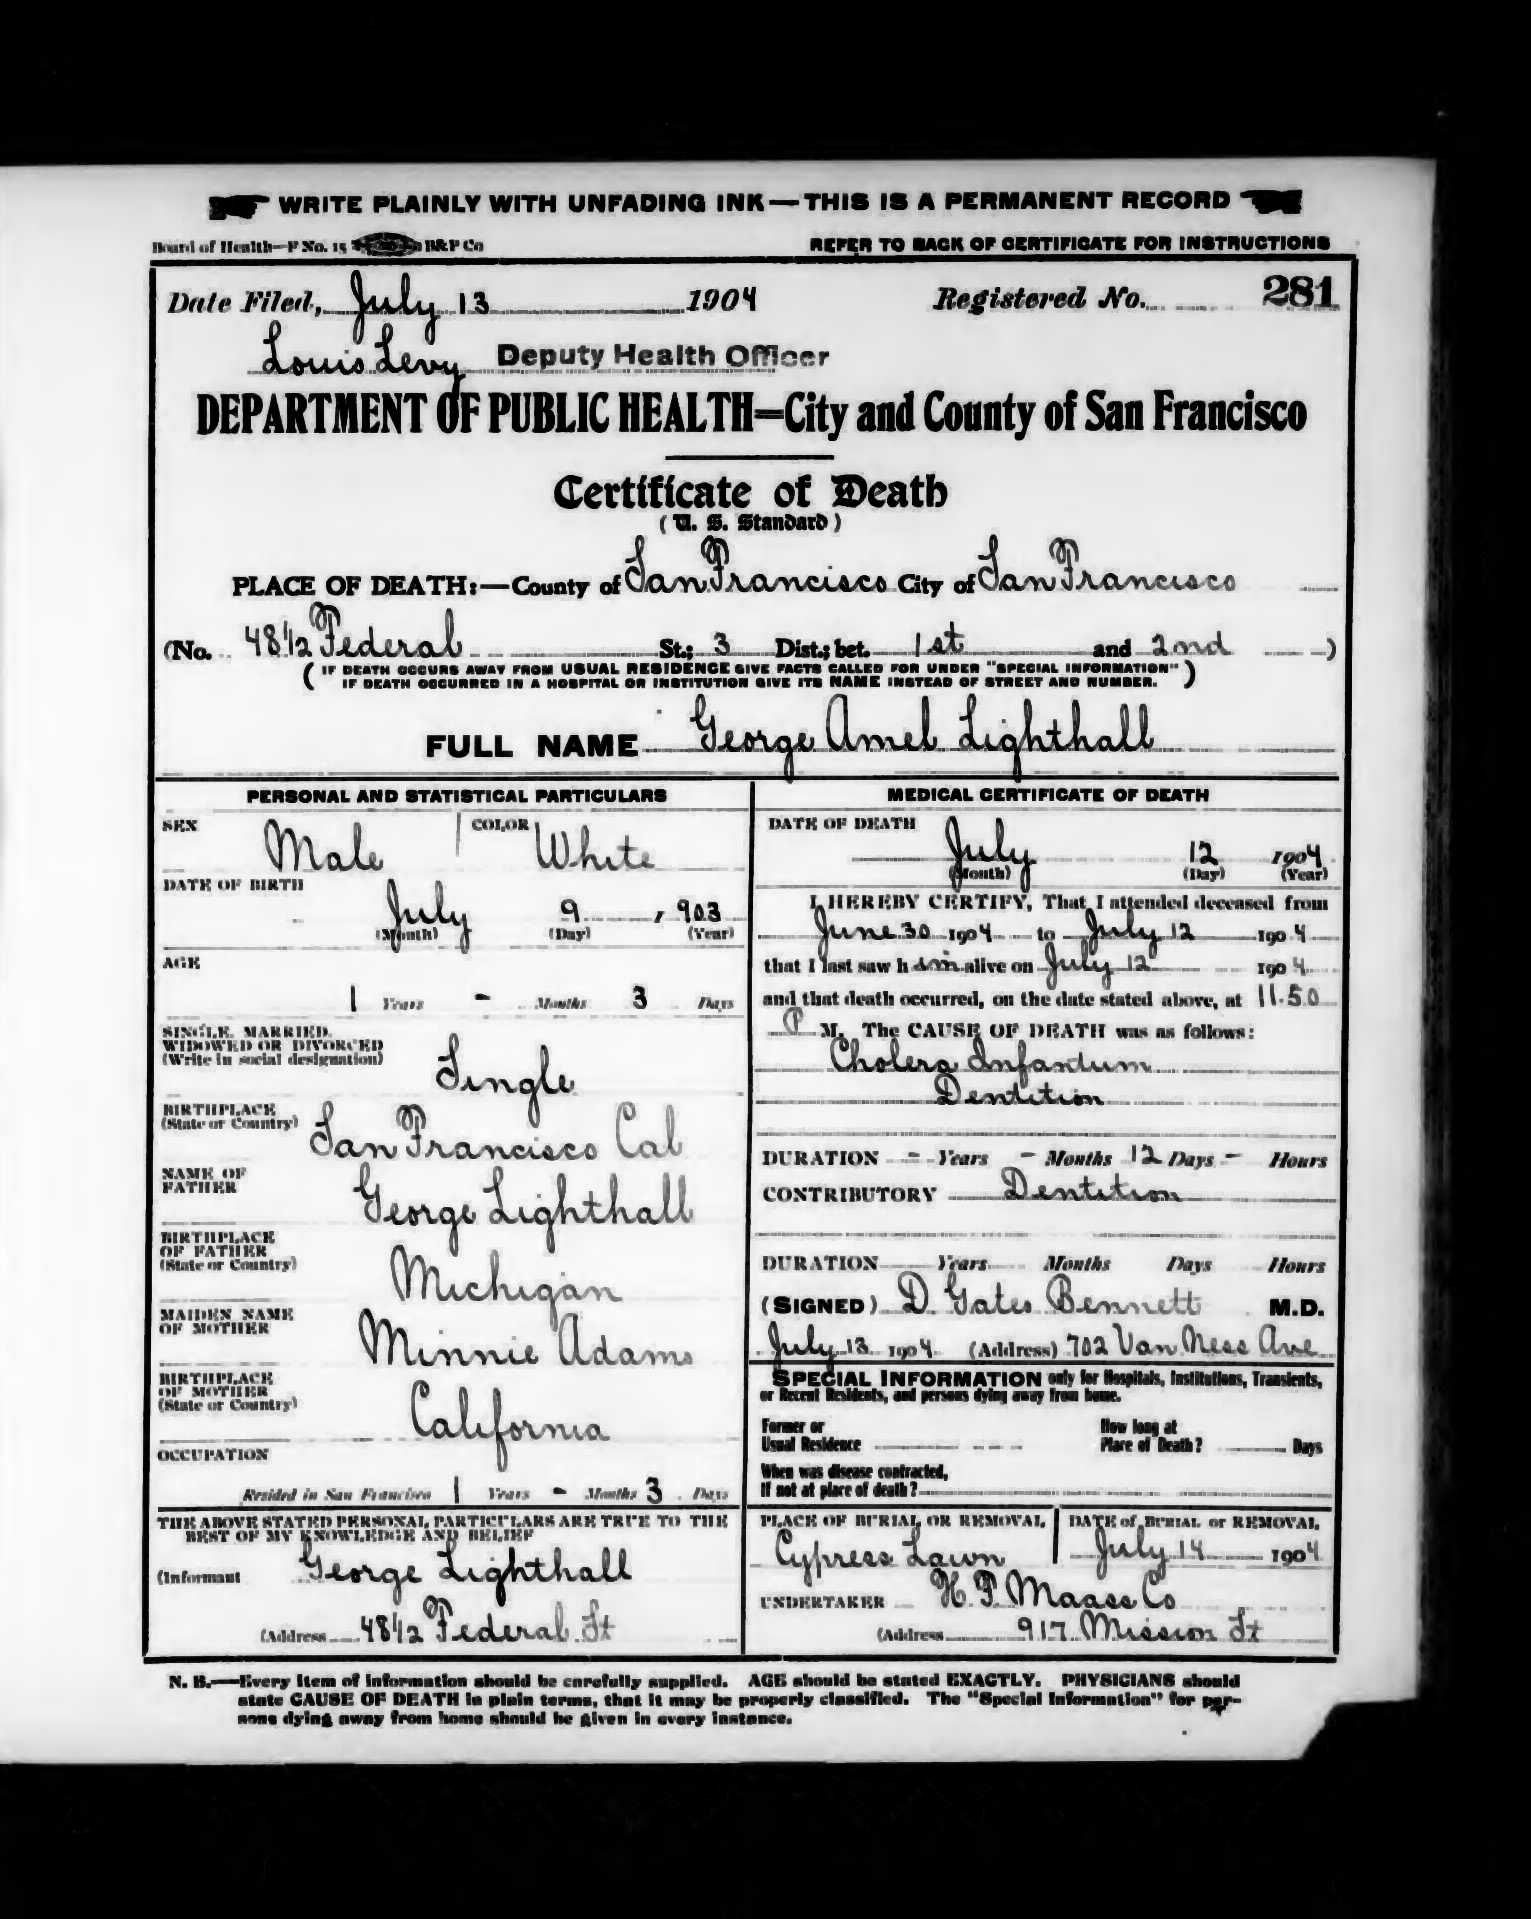 WRITE PLAINLY WITH UNFADING INK—THIS IS A PERMANENT RECORD
Board of Health—F No. 15 B&P Co REFER TO BACK OF CERTIFICATE FOR INSTRUCTIONS
Date Filed, July 13 1904 Registered No. 281
Louis Levy Deputy Health Officer
DEPARTMENT OF PUBLIC HEALTH=City and County of San Francisco
Certificate of Death
(U. S. Standard)
PLACE OF DEATH:—County of San Francisco City of San Francisco
(No. 48 1/2 Federal St.; 3 Dist.; bet. 1st and 2nd )
( IF DEATH OCCURS AWAY FROM USUAL RESIDENCE GIVE FACTS CALLED FOR UNDER "SPECIAL INFORMATION" )
IF DEATH OCCURRED IN A HOSPITAL OR INSTITUTION GIVE ITS NAME INSTEAD OF STREET AND NUMBER.
FULL NAME George Amel Lighthall
PERSONAL AND STATISTICAL PARTICULARS
SEX Male COLOR White
DATE OF BIRTH
July 9, 903
(Month) (Day) (Year)
AGE
1 Years - Months 3 Days
SINGLE, MARRIED,
WIDOWED OR DIVORCED
(Write in social designation) Single
BIRTHPLACE
(State or Country) San Francisco Cal
NAME OF
FATHER George Lighthall
BIRTHPLACE
OF FATHER
(State or Country) Michigan
MAIDEN NAME
OF MOTHER Minnie Adams
BIRTHPLACE
OF MOTHER
(State or Country) California
OCCUPATION
Resided in San Francisco 1 Years - Months 3 Days
THE ABOVE STATED PERSONAL PARTICULARS ARE TRUE TO THE
BEST OF MY KNOWLEDGE AND BELIEF
(Informant George Lighthall
(Address 48 1/2 Federal St
MEDICAL CERTIFICATE OF DEATH
DATE OF DEATH
July 12 1904
(Month) (Day) (Year)
I HEREBY CERTIFY, That I attended deceased from
June 30 1904 to July 12 1904
that I last saw him alive on July 12 1904
and that death occurred, on the date stated above, at 11.50
P M. The CAUSE OF DEATH was as follows:
Cholera Infantum
Dentition
DURATION - Years - Months 12 Days - Hours
CONTRIBUTORY Dentition
DURATION Years Months Days Hours
(SIGNED) D. Gates Bennett M.D.
July 13 1904 (Address) 702 Van Ness Ave
SPECIAL INFORMATION only for Hospitals, Institutions, Transients,
or Recent Residents, and persons dying away from home.
Former or
Usual Residence
How long at
Place of Death? Days
When was disease contracted,
If not at place of death?
PLACE OF BURIAL OR REMOVAL
Cypress Lawn
DATE of BURIAL or REMOVAL
July 14 1904
UNDERTAKER H. F. Maass Co
(Address 917 Mission St
N. B.—Every item of information should be carefully supplied. AGE should be stated EXACTLY. PHYSICIANS should
state CAUSE OF DEATH in plain terms, that it may be properly classified. The "Special Information" for per-
sons dying away from home should be given in every instance.